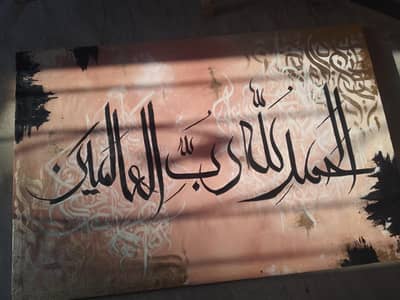 الحمد لله رَبِّ العالمين